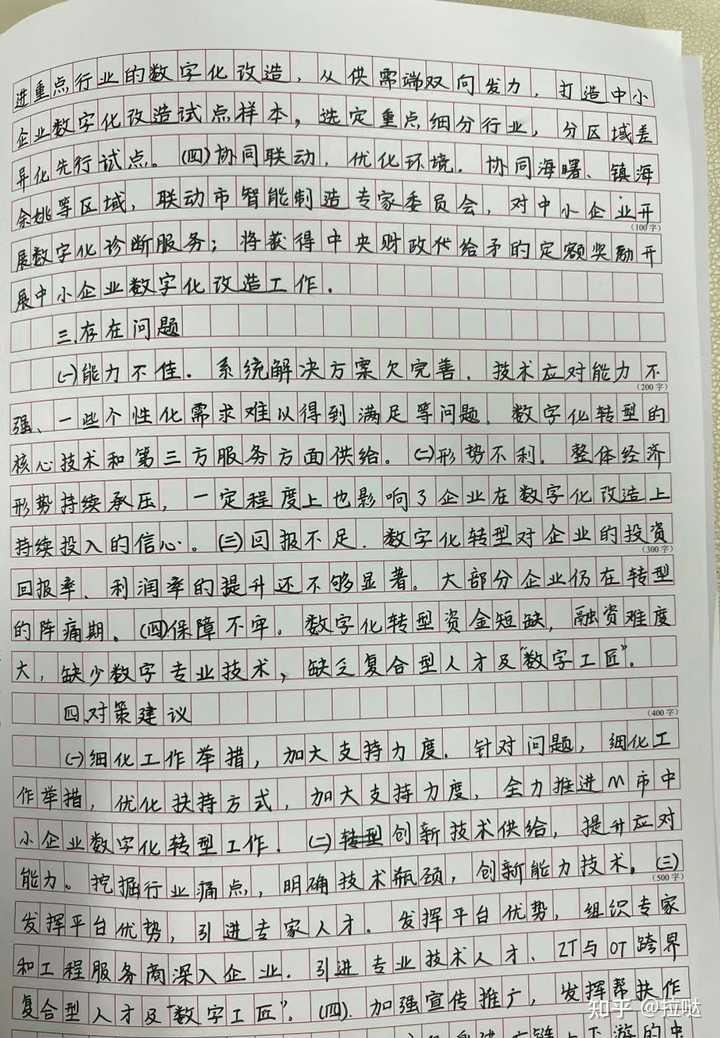 进重点行业的数字化改造，从供需端双向发力，打造中小
企业数字化改造试点样本，选定重点细分行业，分区域差
异化先行试点。(四)协同联动，优化环境．协同海曙、镇海
余姚等区域，联动市智能制造专家委员会，对中小企业开
(100字)
展数字化诊断服务；将获得中央财政代给矛的定额奖励开
展中小企业数字化改造工作．
三.存在问题
(一)能力不佳．系统解决方案欠完善，技术应对能力不
(200字)
强、一些个性化需求难以得到满足等问题，数字化转型的
核心技术和第三方服务方面供给。(二)形势不利．整体经济
形势持续承压，一定程度上也影响了企业在数字化改造上
持续投入的信心。(三)回报不足．数字化转型对企业的投资
(300字)
回报率、利润率的提升还不够显著，大部分企业仍在转型
的阵痛期。(四)保障不牢．数字化转型资金短缺，融资难度
大，缺少数字专业技术，缺乏复合型人才及“数字工匠”．
四.对策建议
(400字)
(一)细化工作举措，加大支持力度．针对问题，细化工
作举措，优化扶持方式，加大支持力度，全力推进M市中
小企业数字化转型工作．(二)转型创新技术供给，提升应对
能力。挖掘行业痛点，明确技术瓶颈，创新能力技术。(三)
(500字)
发挥平台优势，引进专家人才．发挥平台优势，组织专家
和工程服务商深入企业．引进专业技术人才、IT与OT跨界
复合型人才及“数字工匠”。(四).加强宣传推广，发挥帮扶作
知乎 @拉哒